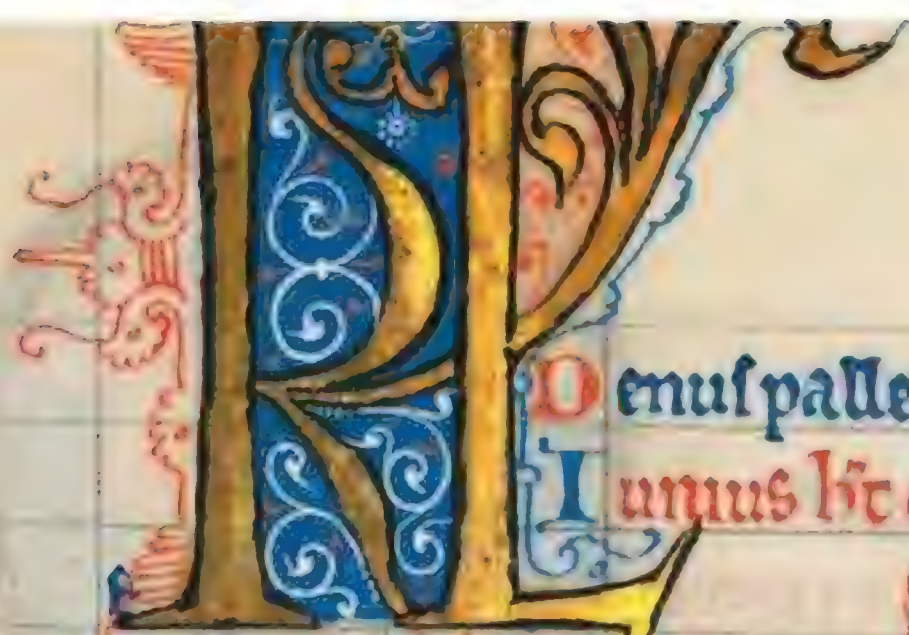 KL
Denuſ palle
Iunius ħt